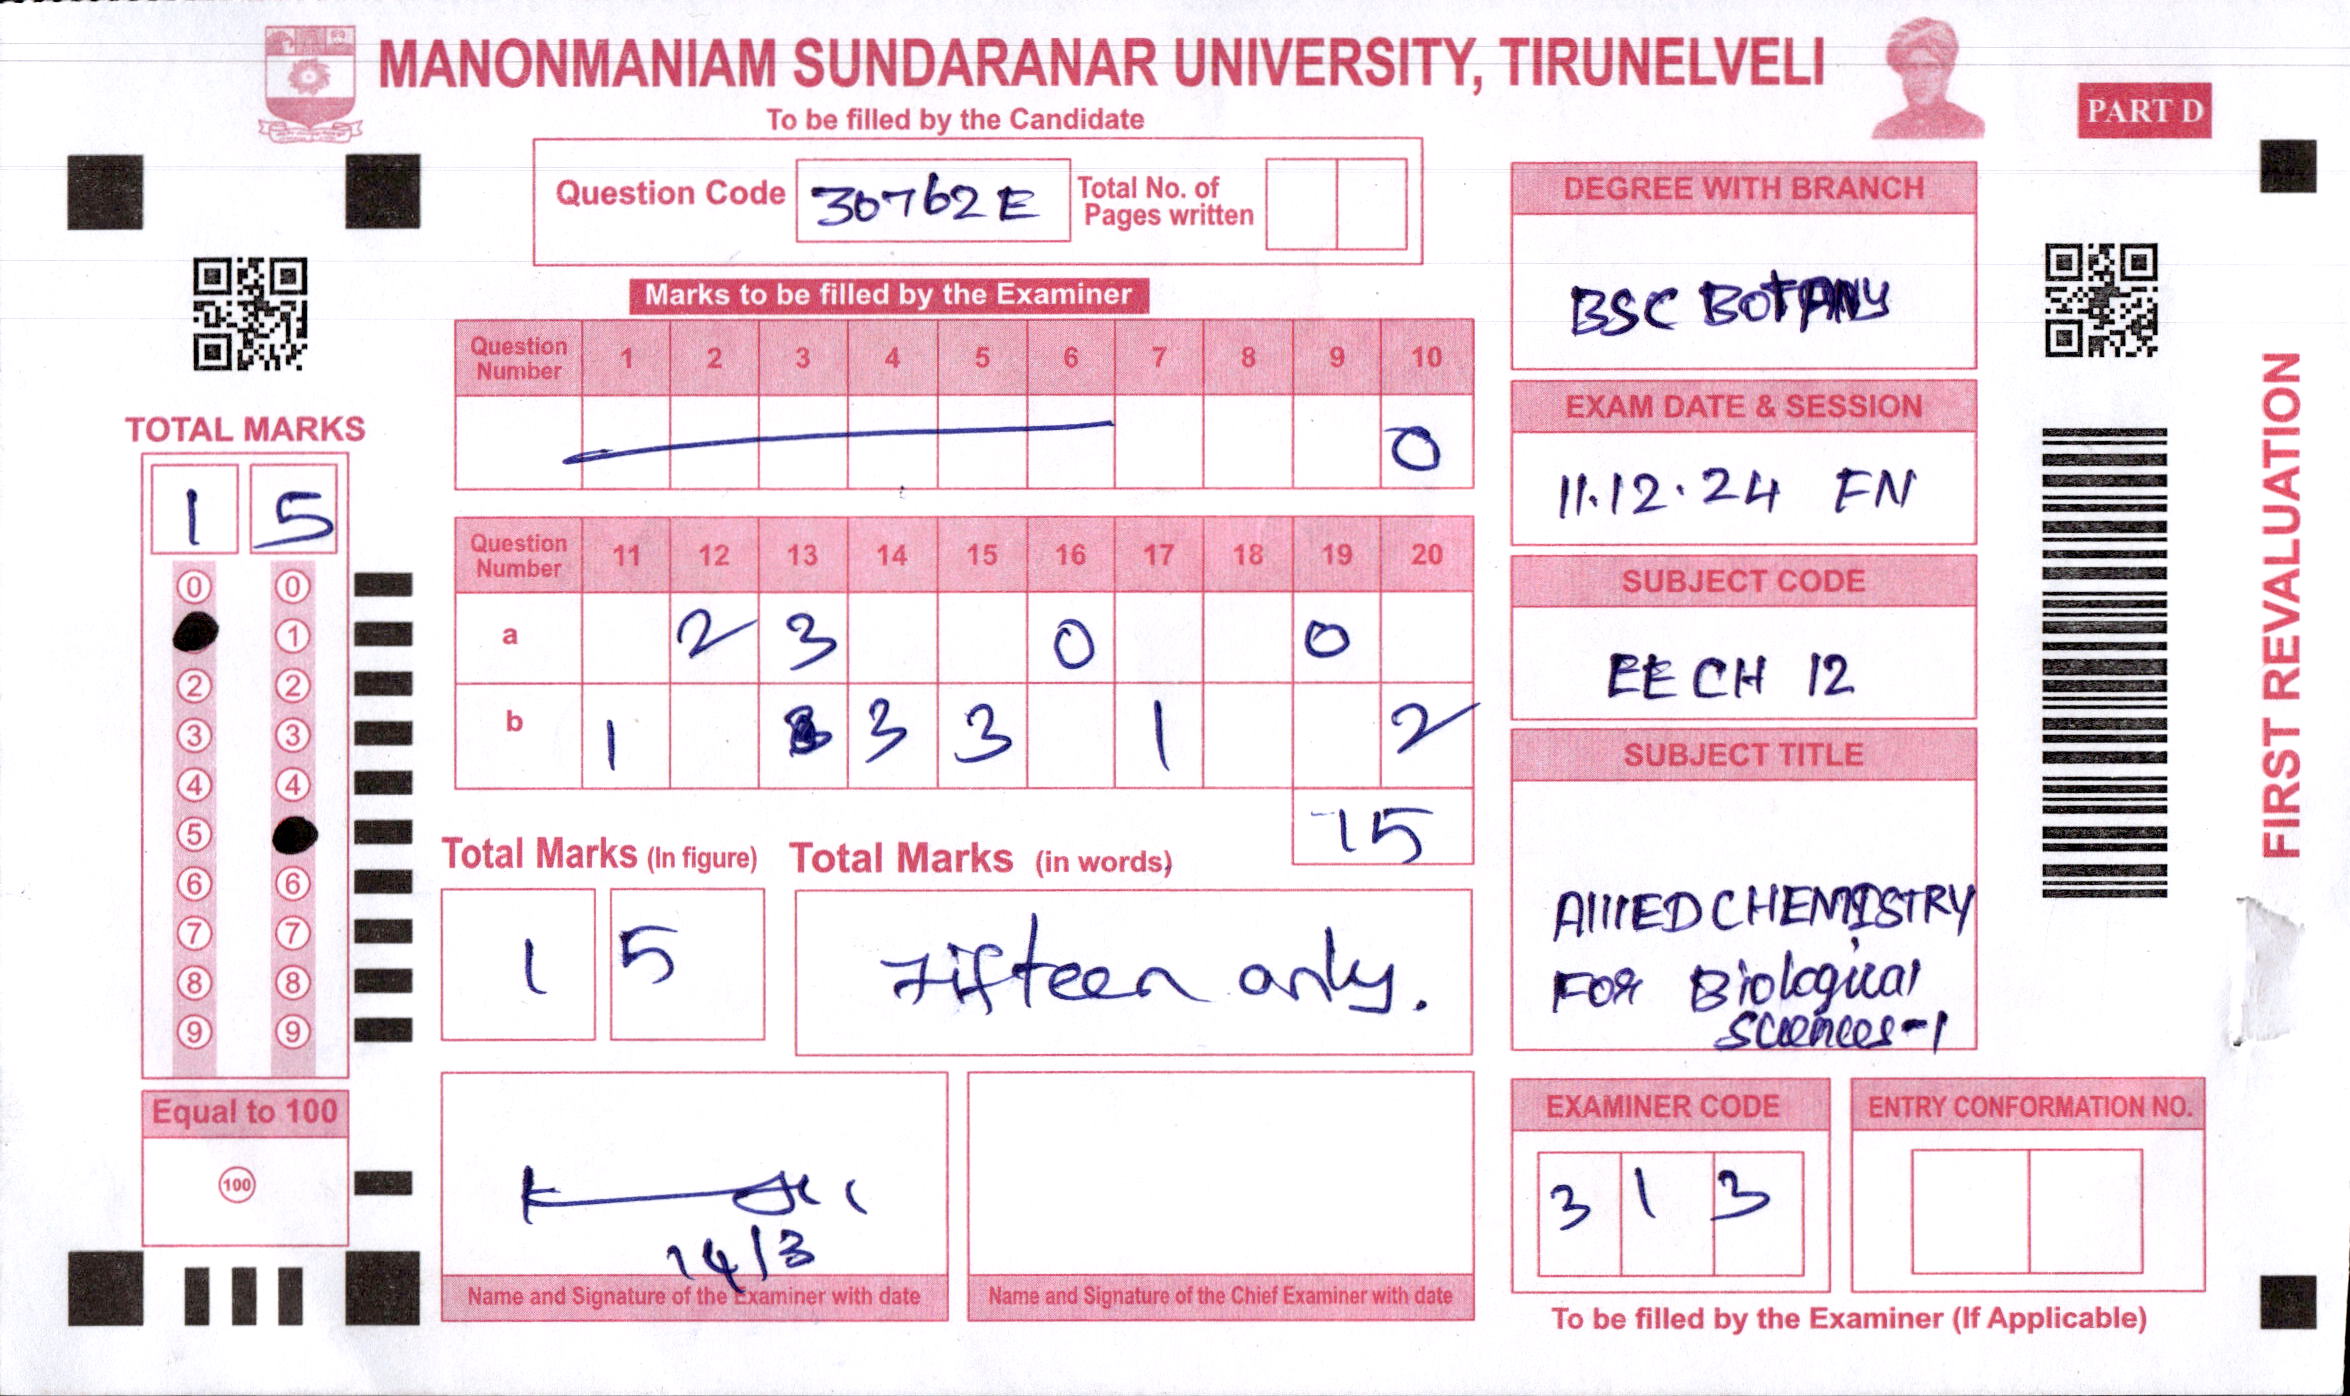 MANONMANIAM SUNDARANAR UNIVERSITY, TIRUNELVELI
PART D
To be filled by the Candidate
Question Code 30762E Total No. of Pages written
Marks to be filled by the Examiner
Question Number 1 2 3 4 5 6 7 8 9 10
0
Question Number 11 12 13 14 15 16 17 18 19 20
a 2 3 0 0
b 1 3 3 1 2
15
Total Marks (In figure) Total Marks (in words)
1 5 Fifteen only.
14/3
Name and Signature of the Examiner with date
Name and Signature of the Chief Examiner with date
TOTAL MARKS
1 5
0 0
1
2 2
3 3
4 4
5
6 6
7 7
8 8
9 9
Equal to 100
100
DEGREE WITH BRANCH
BSC BOTANY
EXAM DATE & SESSION
11.12.24 FN
SUBJECT CODE
EE CH 12
SUBJECT TITLE
AllIED CHEMISTRY
FOR Biological
Sciences-1
EXAMINER CODE
3 1 3
ENTRY CONFORMATION NO.
To be filled by the Examiner (If Applicable)
FIRST REVALUATION